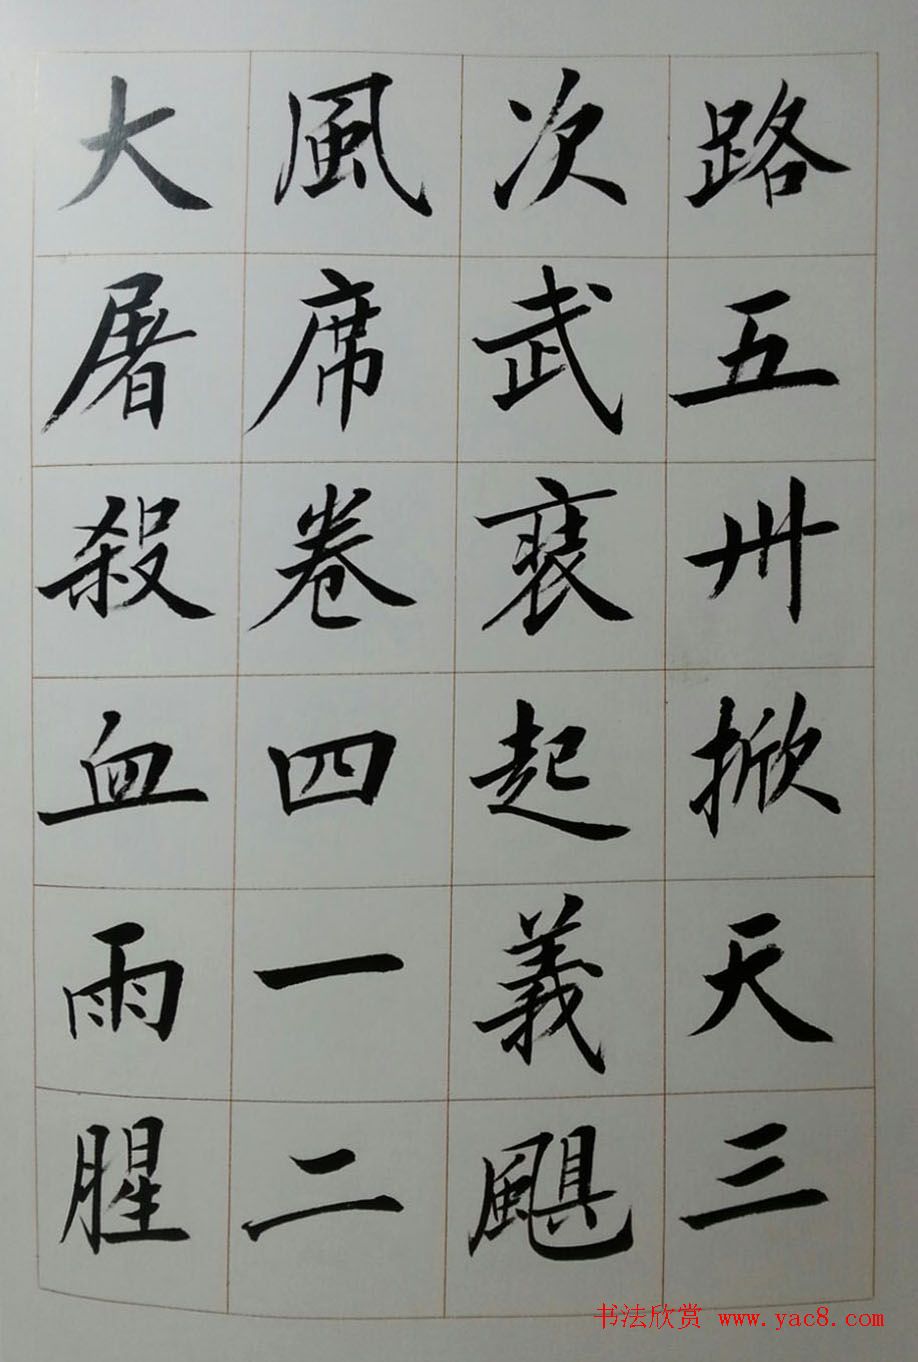 路五卅掀天三
次武裝起義颶
風席卷四一二
大屠殺血雨腥
书法欣赏 www.yac8.com